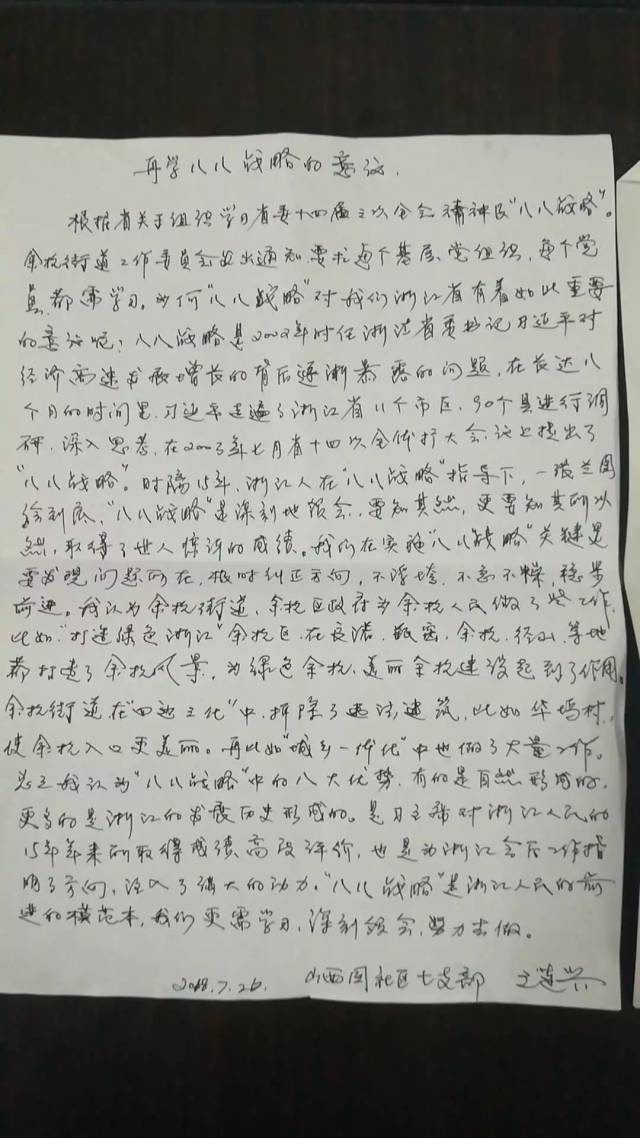 再学八八战略的意议.
根据省关于组织学习省委十四届三次全会精神及"八八战略"。
余杭街道工作委员会发出通知,要求每个基层党组织,每个党
员都需学习。为何"八八战略"对我们浙江省有着如此重要
的意议呢?八八战略是2002年时任浙江省委书记习近平对
经济高速发展增长的背后逐渐暴露的问题,在长达八
个月的时间里,习近平走遍了浙江省11个市区,90个县进行调
研,深入思考,在2003年七月省十四次全体扩大会议上提出了
"八八战略"。时隔15年,浙江人在"八八战略"指导下,一张兰图
绘到底,"八八战略"是深刻地领会,要知其然,更要知其所以
然,取得了世人惊讶的成绩。我们在实施"八八战略"关键是
要发现问题所在,及时纠正方向,不浮夸,不急不燥,稳步
前进。我认为余杭街道,余杭区政府为余杭人民做了些工作,
比如"打造绿色浙江"余杭区,在良渚,瓶窑,余杭,径山,等地
都打造了余杭风景,为绿色余杭,美丽余杭建设起到了作用。
余杭街道在"四边三化"中,拆除了违法建筑,比如华坞村,
使余杭入口更美丽。再比如"城乡一体化"中也做了大量工作。
总之我认为"八八战略"中的八大优势,有的是自然形成的,
更多的是浙江的发展历史形成的。是习主席对浙江人民的
15年来所取得成绩高度评价,也是为浙江今后工作指
明了方向,注入了强大的动力。"八八战略"是浙江人民的前
进的模范本,我们更需学习,深刻领会,努力去做。
2018.7.26. 山西园社区七支部 王莲兴